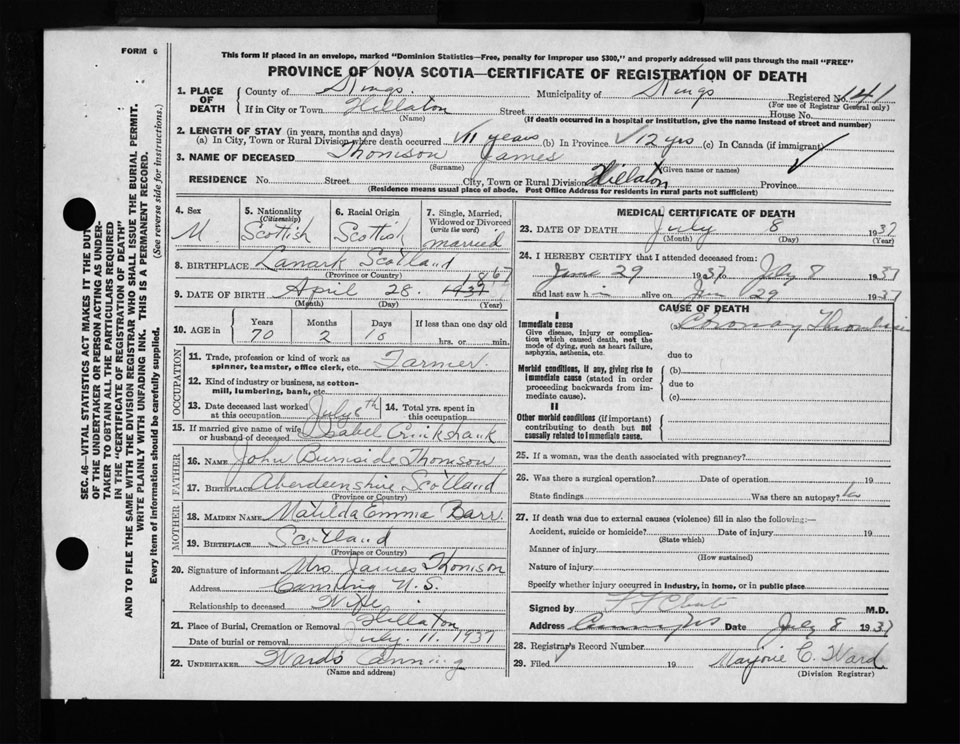 FORM 6
This form if placed in an envelope, marked "Dominion Statistics—Free, penalty for improper use $300," and properly addressed will pass through the mail "FREE"
PROVINCE OF NOVA SCOTIA—CERTIFICATE OF REGISTRATION OF DEATH
SEC. 46—VITAL STATISTICS ACT MAKES IT THE DUTY
OF THE UNDERTAKER OR PERSON ACTING AS UNDER-
TAKER TO OBTAIN ALL THE PARTICULARS REQUIRED
IN THE "CERTIFICATE OF REGISTRATION OF DEATH"
AND TO FILE THE SAME WITH THE DIVISION REGISTRAR WHO SHALL ISSUE THE BURIAL PERMIT.
WRITE PLAINLY WITH UNFADING INK. THIS IS A PERMANENT RECORD.
Every item of information should be carefully supplied. (See reverse side for instructions.)
1. PLACE OF DEATH
County of Kings. Municipality of Kings Registered No. 141
(For use of Registrar General only)
If in City or Town Hillaton Street House No.
(Name) (If death occurred in a hospital or institution, give the name instead of street and number)
2. LENGTH OF STAY (in years, months and days)
(a) In City, Town or Rural Division where death occurred 11 years (b) In Province 12 yrs (c) In Canada (if immigrant)
3. NAME OF DECEASED Thomson James
(Surname) (Given name or names)
RESIDENCE No. Street City, Town or Rural Division Hillaton Province
(Residence means usual place of abode. Post Office Address for residents in rural parts not sufficient)
4. Sex
M.
5. Nationality (Citizenship)
Scottish
6. Racial Origin
Scottish
7. Single, Married, Widowed or Divorced (write the word)
married
8. BIRTHPLACE Lanark Scotland
(Province or Country)
9. DATE OF BIRTH April 28. 1937 1867
(Month) (Day) (Year)
10. AGE in Years Months Days If less than one day old
70 2 10 hrs. or min.
OCCUPATION
11. Trade, profession or kind of work as spinner, teamster, office clerk, etc. Farmer
12. Kind of industry or business, as cotton-mill, lumbering, bank, etc.
13. Date deceased last worked at this occupation July 8th 14. Total yrs. spent in this occupation
15. If married give name of wife or husband of deceased Isabel Cruikshank
FATHER
16. Name John Burnside Thomson
17. Birthplace Aberdeenshire Scotland
(Province or Country)
MOTHER
18. Maiden Name Matilda Emma Barr
19. Birthplace Scotland
(Province or Country)
20. Signature of informant Mrs. James Thomson
Address Canning N.S.
Relationship to deceased Wife
21. Place of Burial, Cremation or Removal Hillaton
Date of burial or removal July. 11. 1937
22. UNDERTAKER Wards Canning
(Name and address)
MEDICAL CERTIFICATE OF DEATH
23. DATE OF DEATH July 8 1937
(Month) (Day) (Year)
24. I HEREBY CERTIFY that I attended deceased from:
June 29 1937 to July 8 1937
and last saw h im alive on Jun 29 1937
CAUSE OF DEATH
I
Immediate cause (a) Coronary Thrombosis
Give disease, injury or complication which caused death, not the mode of dying, such as heart failure, asphyxia, asthenia, etc.
due to
Morbid conditions, if any, giving rise to immediate cause (stated in order proceeding backwards from immediate cause).
(b)
due to
(c)
II
Other morbid conditions (if important) contributing to death but not causally related to immediate cause.
25. If a woman, was the death associated with pregnancy?
26. Was there a surgical operation? Date of operation 19
State findings Was there an autopsy? No
27. If death was due to external causes (violence) fill in also the following:—
Accident, suicide or homicide? Date of injury 19
(State which)
Manner of injury
(How sustained)
Nature of injury
Specify whether injury occurred in industry, in home, or in public place
Signed by M.D.
Address Canning NS Date July 8 1937
28. Registrar's Record Number
29. Filed 19 Marjorie C. Ward
(Division Registrar)